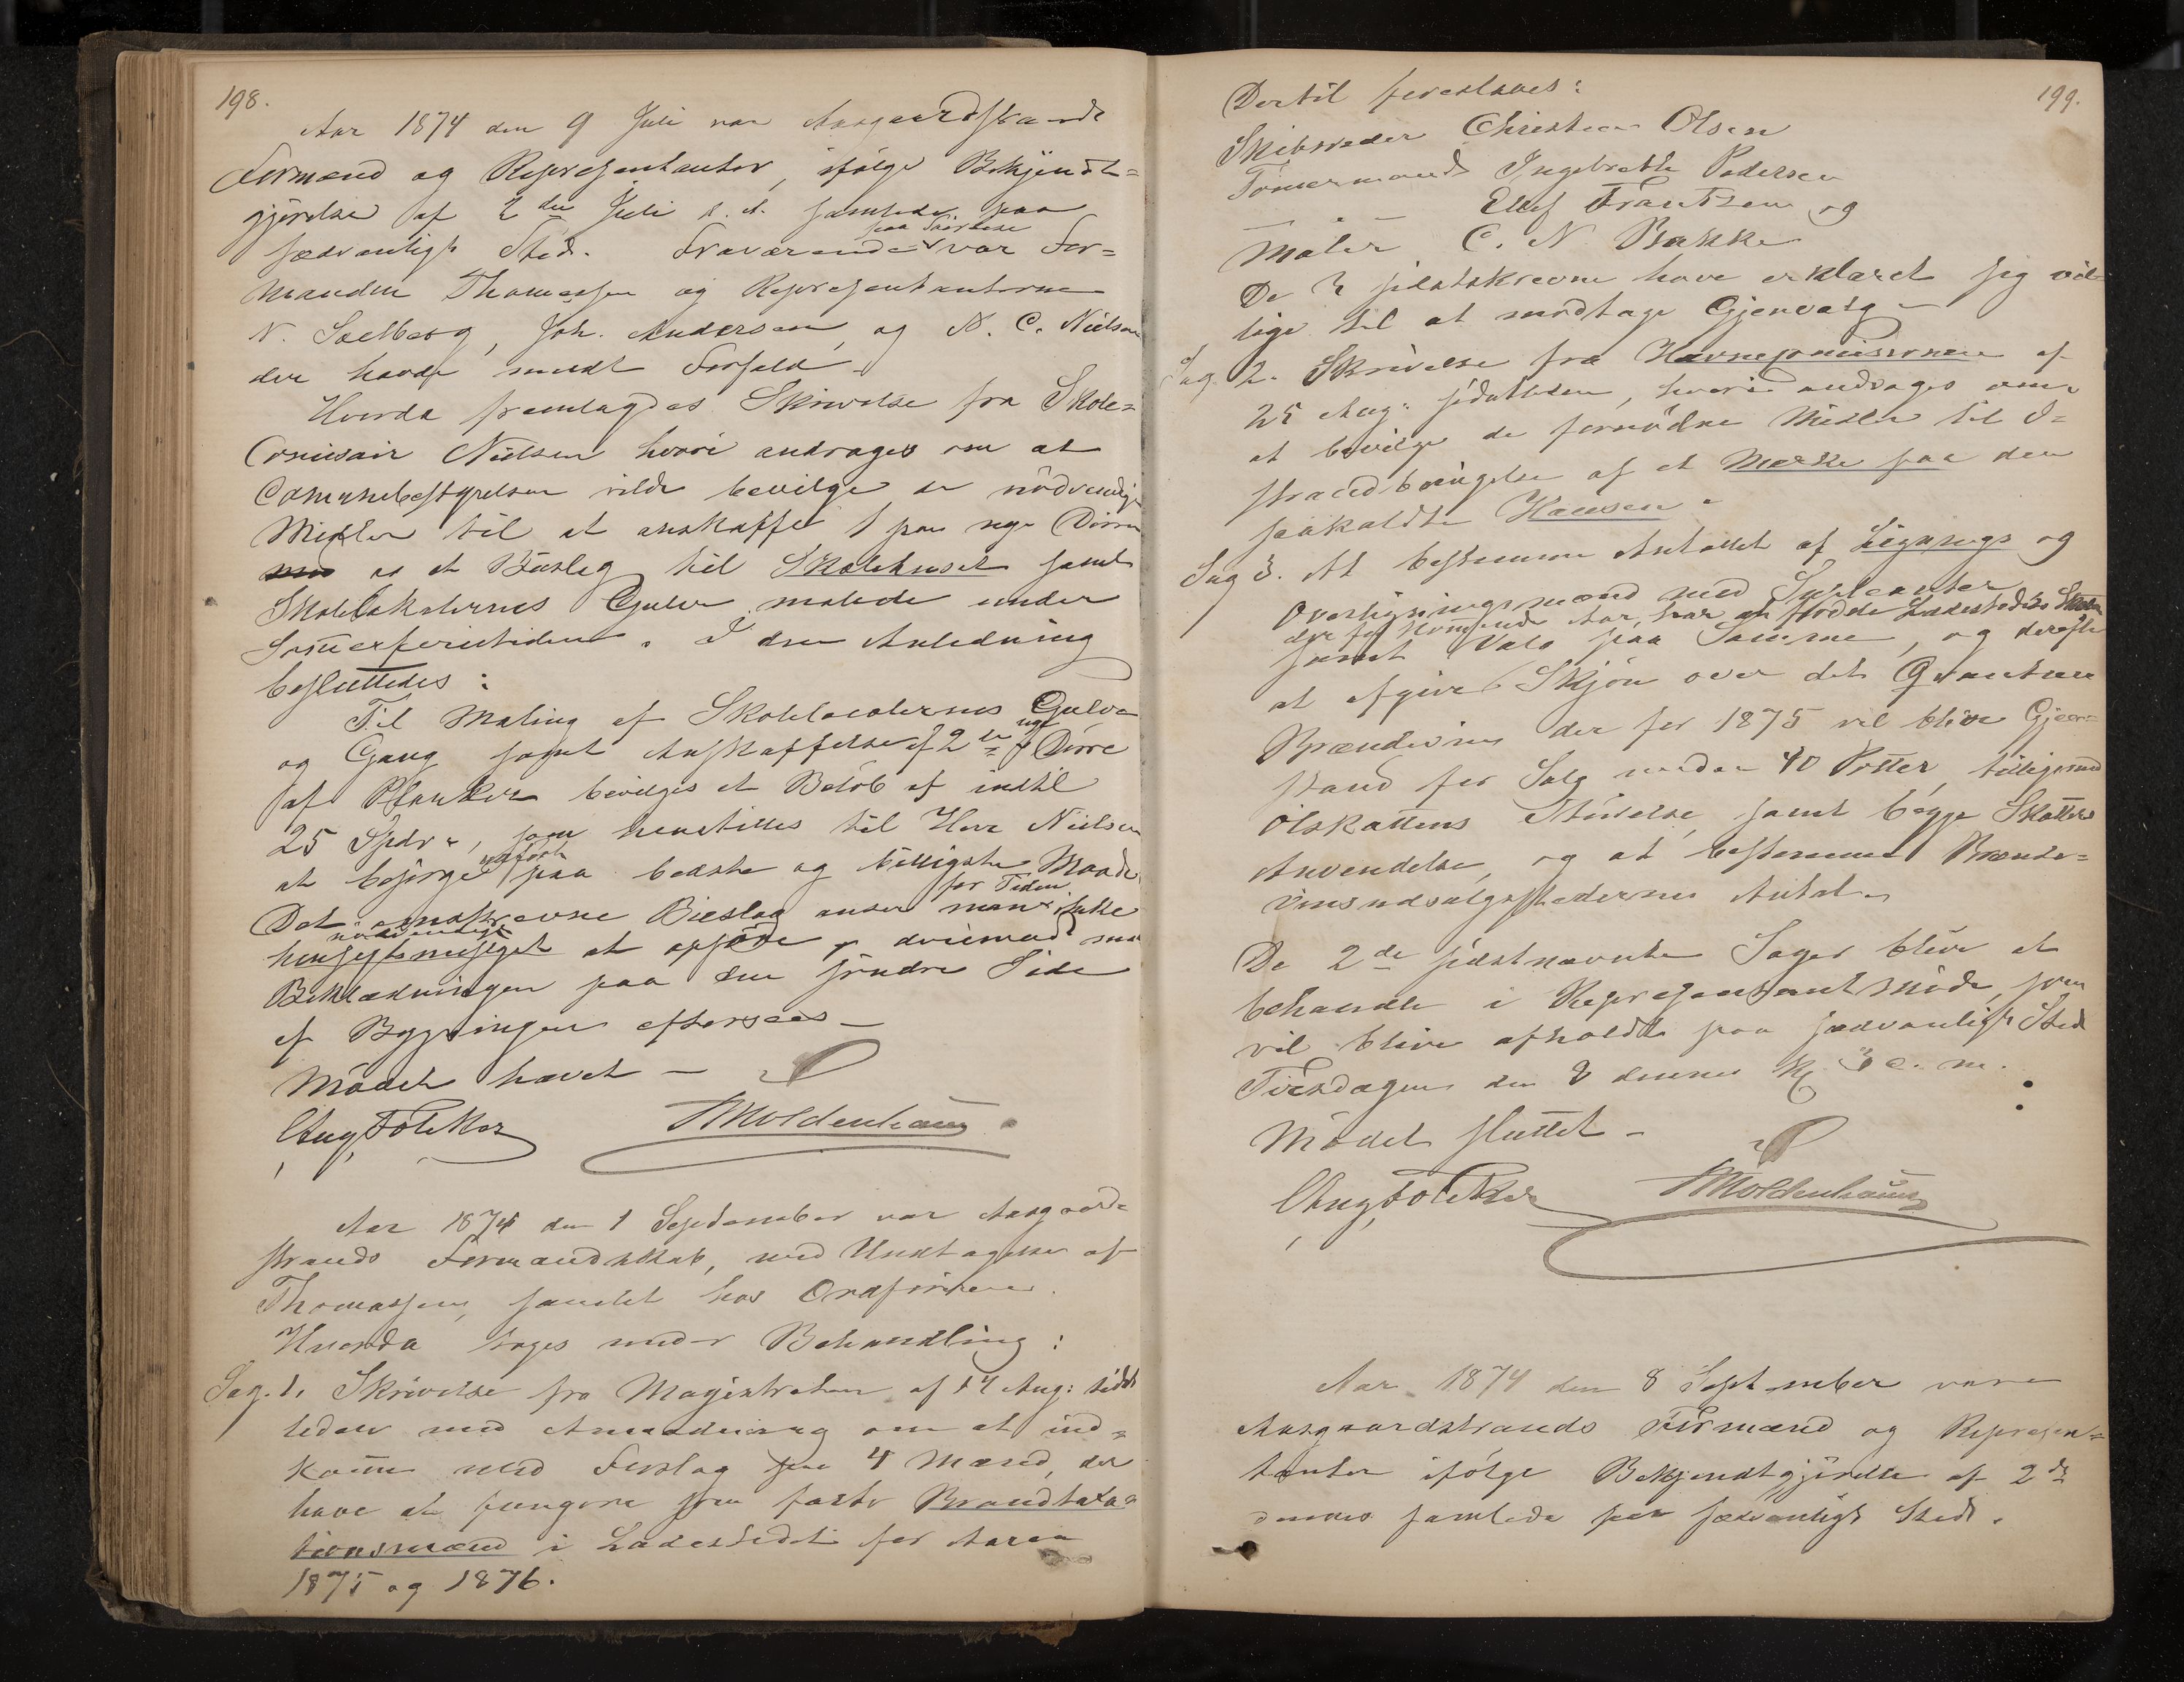 198.
Aar 1874 den 9 Juli var Aasgaardstrands
Formænd og Repræsentanter, ifölge Bekjendt=
gjörelse af 2den Juli d. A. samlede paa
sædvanligt Sted. Fraværende var For=
manden Thomassen og Repræsentanterne
N. Soelberg, Joh. Andersen, og N. C. Nielsen
der havde meldt Forfald.
Hvorda fremlagdes Skrivelse fra Skole=
Comissair Nielsen hvori andrages om at
Communebestyrelsen vilde bevilge de nödvendige
Midler til at anskaffe 1 par nye Dörre
og et Bislag til Skolehuset samt
Skolelokalernes Gulve malede under
Sommerferietiden. I den Anledning
besluttedes:
Til Maling af Skolelocalernes Gulve
og Gang samt Anskaffelse af 2de nye Dörre
af Planker bevilges et Belöb af indtil
25 Spdr., som henstilles til Herr Nielsen
at besörge udfört paa bedste og billigste Maade
Det omskrevne Bislag anser man for Tiden ikke
nödvendigt at opföre, derimod maa
Beklædningen paa den söndre Side
af Bygningen eftersees —
Mödet hævet —
Aug Fölcker Moldenhauer
Aar 1874 den 1 September var Aasgaard=
strands Formandskab, med Undtagelse af
Thomassen, samlet hos Ordföreren.
Hvorda toges under Behandling:
Sag. 1. Skrivelse fra Magistraten af 14 Aug: sidst
leden med Anmodning om at ind=
komme med Forslag paa 4 Mænd, der
have at fungere som faste Brandtaxa=
tionsmænd i Ladestedet for Aaren
1875 og 1876.
199.
Dertil foreslaaes:
Skibsreder Christian Olsen
Tömermand Ingebreth Pedersen
— Ellef Frantzen og
Maler C. N. Bakke
De 3 sidstskrevne have erklæret sig vil=
lige til at modtage Gjenvalg —
Sag. 2. Skrivelse fra Havnecomissionen af
25 Aug: sidstleden, hvori andrages om
at bevilge de fornödne Midler til I=
standbringelse af et Mærke paa den
saakaldte
Sag 3. At bestemme Antallet af Lignings og
Overligningsmænd med Suppleanter
der for kommende Aar, har at Ladestedets
samt Valg paa Samme, og derefter
at afgive Skjön over det Qvantum
Brændeviin der for 1875 vil blive Gjen=
stand for Salg under 40 Potter, tilligemed
Ölskattens Störelse, samt begge Skatters
Anvendelse, og at bestemme Brænde=
viinsudsalgsstedernes Antal.
De 2de sidstnævnte Sager blive at
behandle i Repræsentantmöde, som
vil blive afholdt paa sædvanligt Sted
Tirsdagen den 8 dennes Kl. 3 e. m.
Mödet sluttet —
Aug Fölcker Moldenhauer
Aar 1874 den 8 September vare
Aasgaardstrands Formænd og Repræsen=
tanter ifölge Bekjendtgjörelse af 2de
dennes samlede paa sædvanligt Sted.